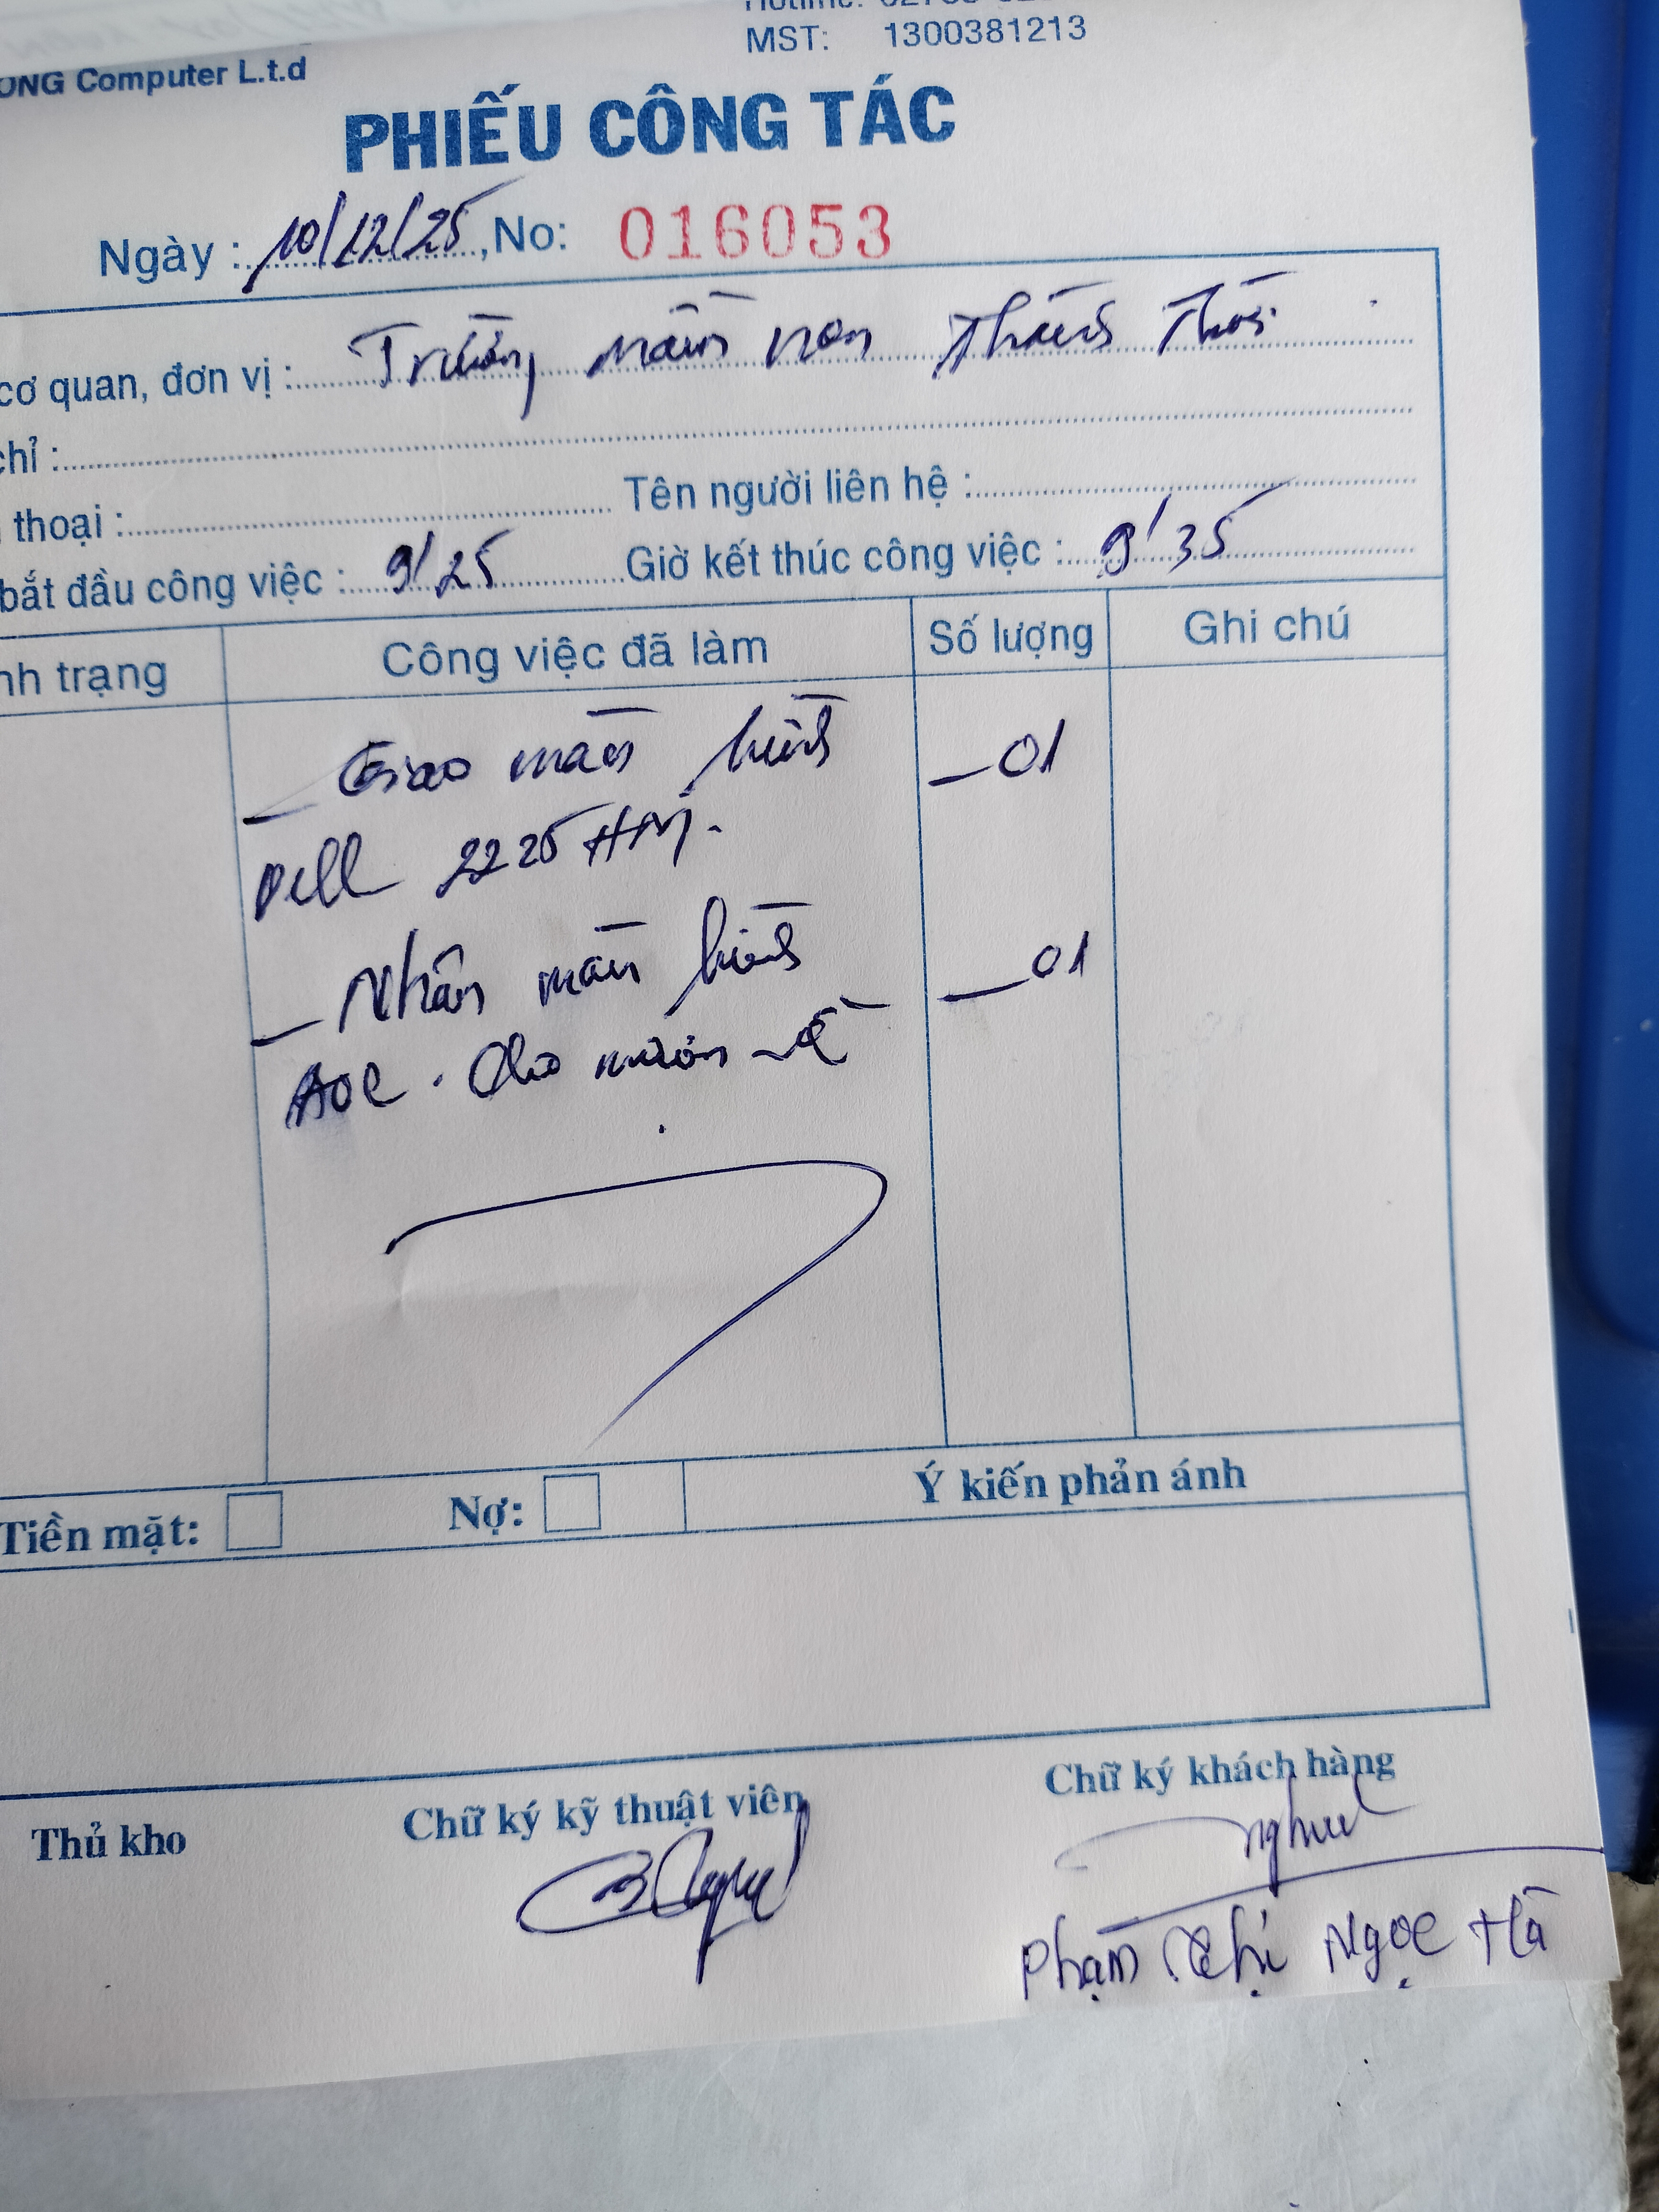 MST: 1300381213
ONG Computer L.t.d
PHIẾU CÔNG TÁC
Ngày : 10/12/25, No: 016053
cơ quan, đơn vị : Trường mầm non Thành Thới
chỉ :
thoại : Tên người liên hệ :
bắt đầu công việc : 9/25 Giờ kết thúc công việc : 9/35
nh trạng Công việc đã làm Số lượng Ghi chú
_ Giao màn hình _01
Dell 2225HM.
_ Nhận màn hình _01
AOC. Cho mượn về
Tiền mặt: Nợ: Ý kiến phản ánh
Thủ kho Chữ ký kỹ thuật viên Chữ ký khách hàng
Phạm Thị Ngọc Hà